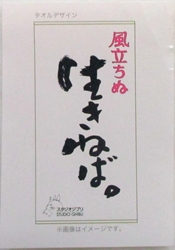 タオルデザイン
風立ちぬ
生きねば。
スタジオジブリ
STUDIO GHIBLI
※画像はイメージです。